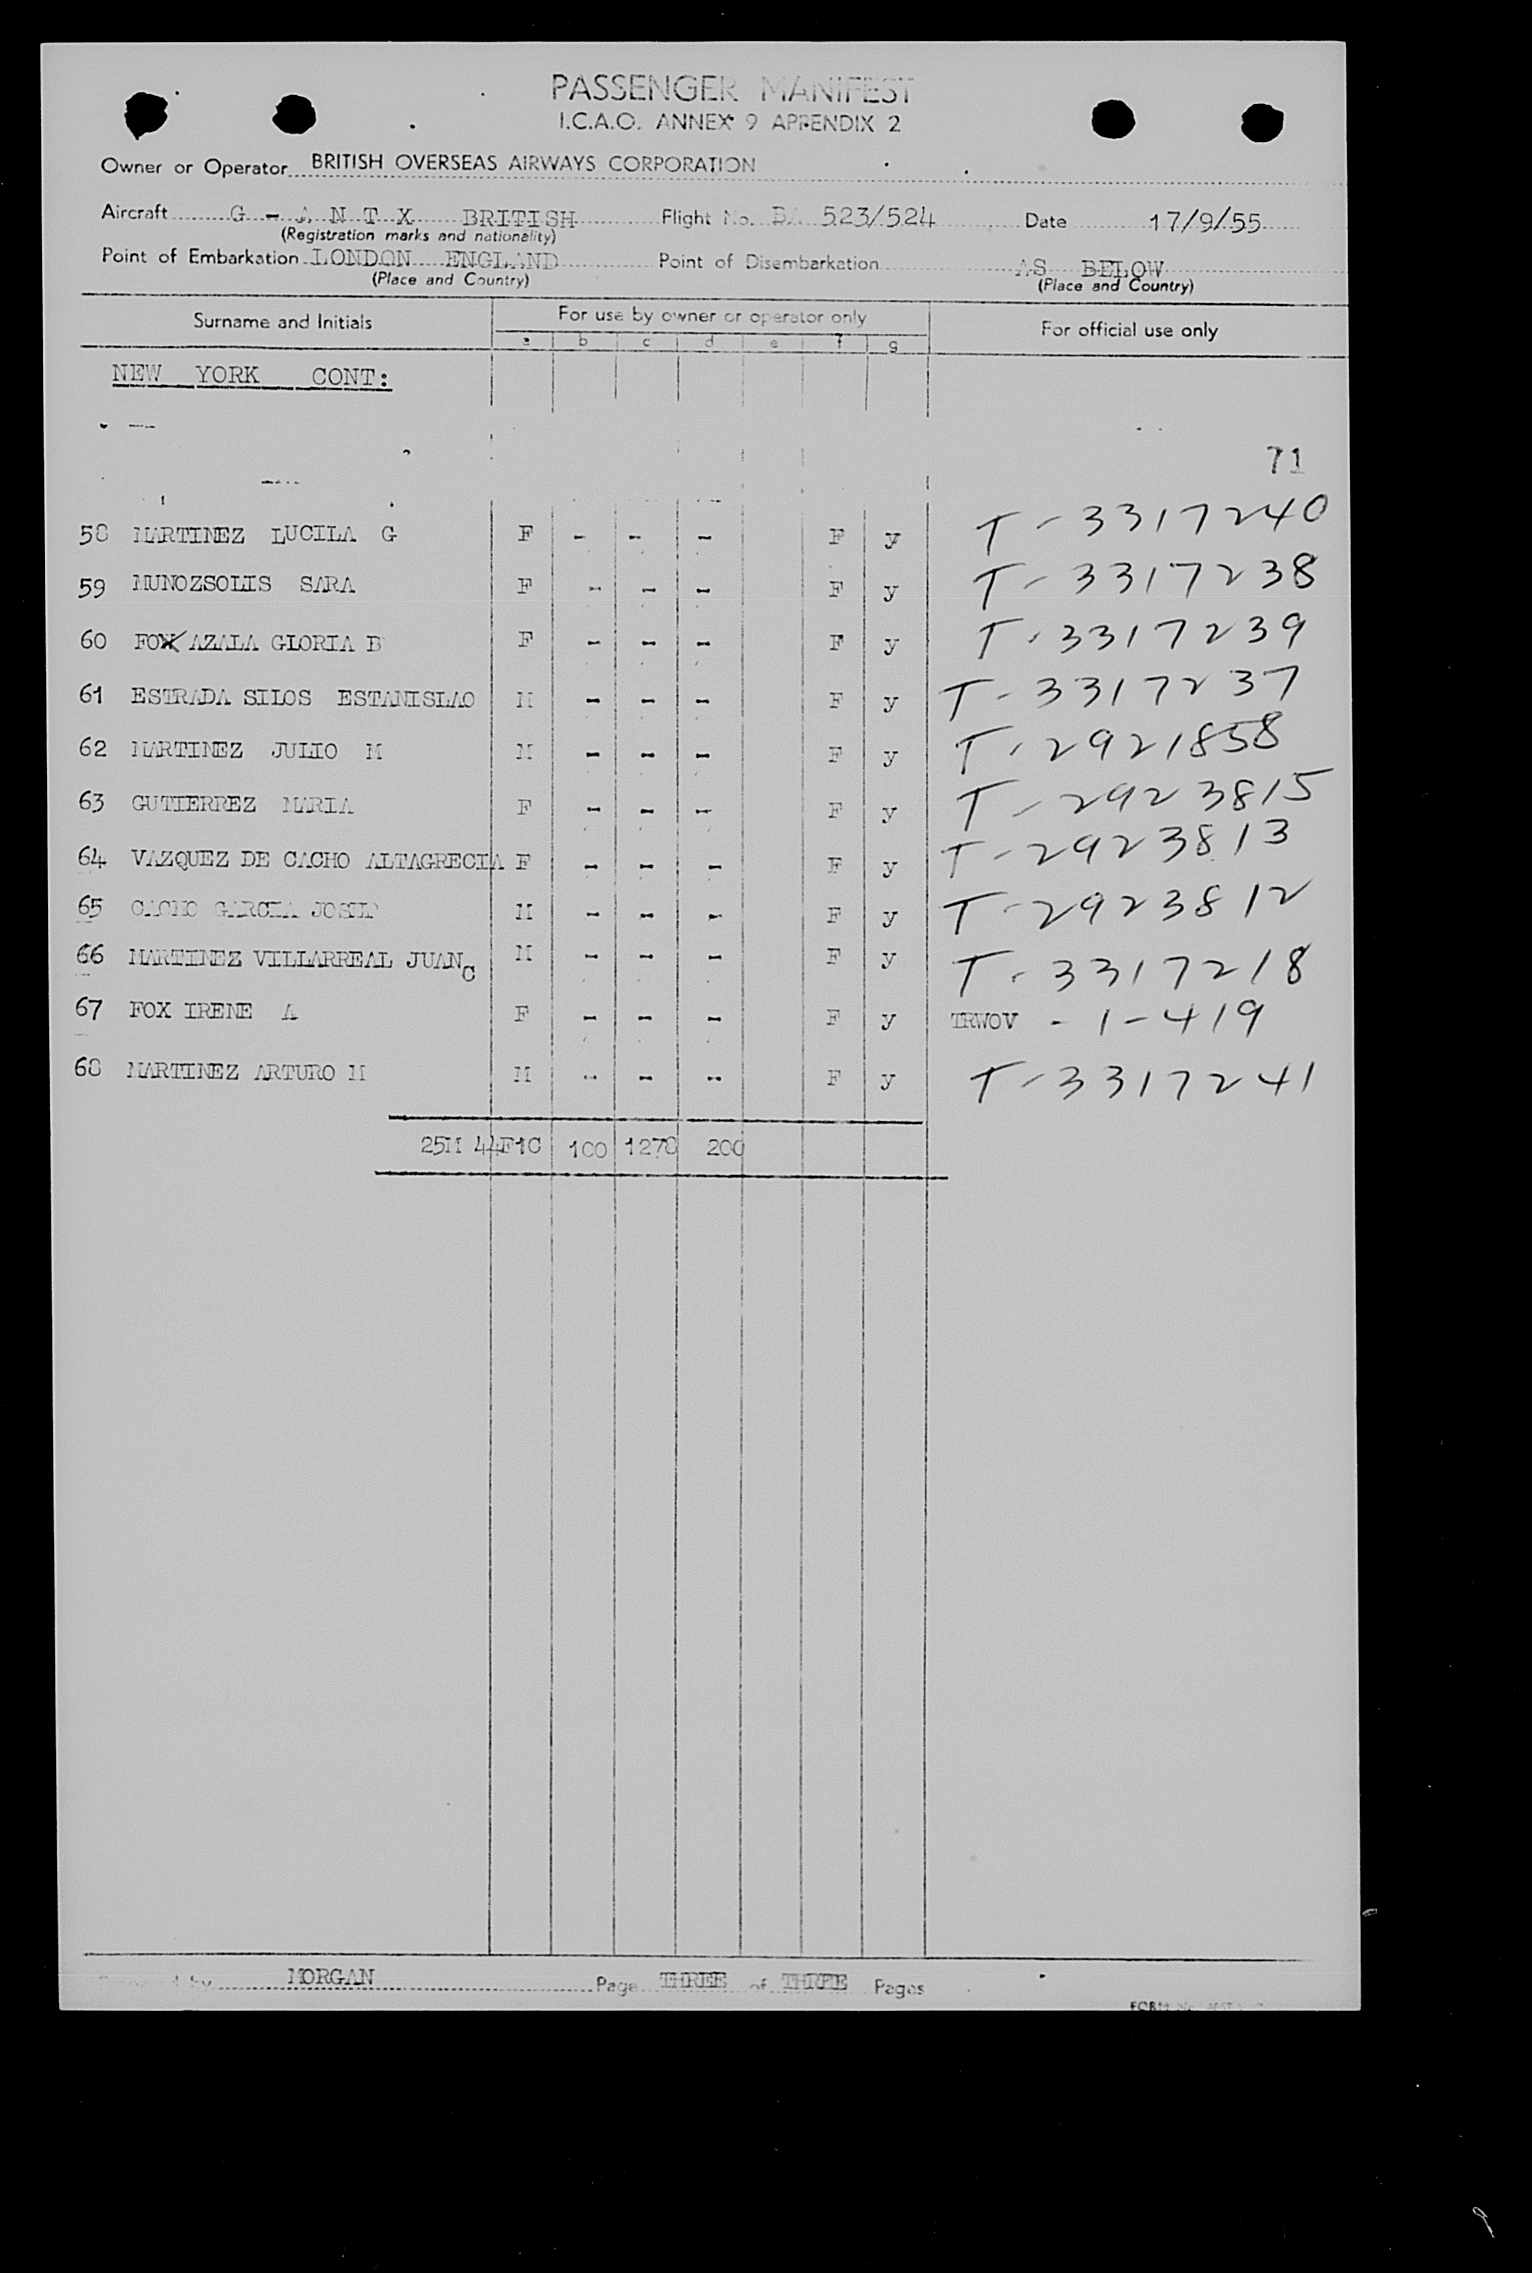 PASSENGER MANIFEST
I.C.A.O. ANNEX 9 APPENDIX 2
Owner or Operator BRITISH OVERSEAS AIRWAYS CORPORATION
Aircraft G - A N T X BRITISH Flight No. BA 523/524 Date 17/9/55
(Registration marks and nationality)
Point of Embarkation LONDON ENGLAND Point of Disembarkation AS BELOW
(Place and Country) (Place and Country)
Surname and Initials For use by owner or operator only For official use only
a b c d e f g
NEW YORK CONT:
71
58 MARTINEZ LUCILA G F - - - F y T - 3317240
59 MUNOZSOLIS SARA F - - - F y T - 3317238
60 FOX AZALA GLORIA B F - - - F y T - 3317239
61 ESTRADA SILOS ESTANISLAO M - - - F y T - 3317237
62 MARTINEZ JULIO M M - - - F y T - 2921858
63 GUTIERREZ MARIA F - - - F y T - 2923815
64 VAZQUEZ DE CACHO ALTAGRECIA F - - - F y T - 2923813
65 CACHO GARCIA M - - - F y T - 2923812
66 MARTINEZ VILLARREAL JUAN C M - - - F y T - 3317218
67 FOX IRENE A F - - - F y TRWOV - 1-419
68 MARTINEZ ARTURO M M - - - F y T - 3317241
25M 44F1C 100 1270 200
by MORGAN Page THREE of THREE Pages
FORM